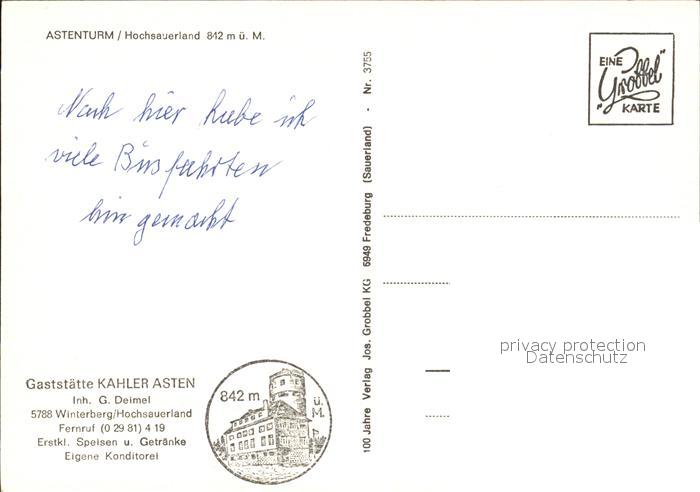 ASTENTURM / Hochsauerland 842 m ü. M.
EINE
"Grobbel"
KARTE
Nach hier habe ich
viele Busfahrten
hin gemacht
100 Jahre Verlag Jos. Grobbel KG 5949 Fredeburg (Sauerland) - Nr. 3755
privacy protection
Datenschutz
Gaststätte KAHLER ASTEN
Inh. G. Deimel
5788 Winterberg/Hochsauerland
Fernruf (0 29 81) 4 19
Erstkl. Speisen u. Getränke
Eigene Konditorei
842 m ü. M.